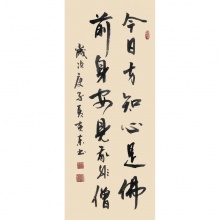 今日方知心是佛
前身安見我非僧
歲次庚子夏